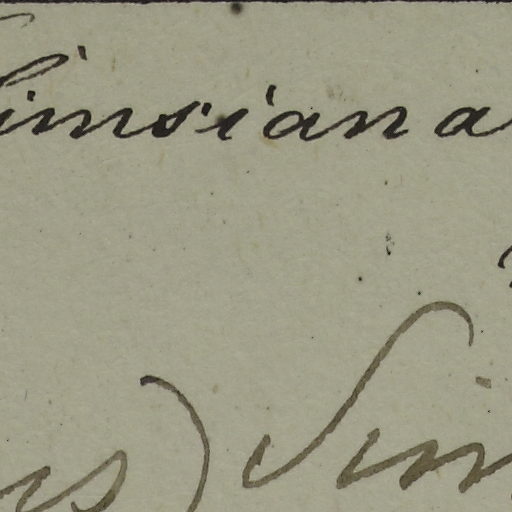 Simsiana
us) Sim